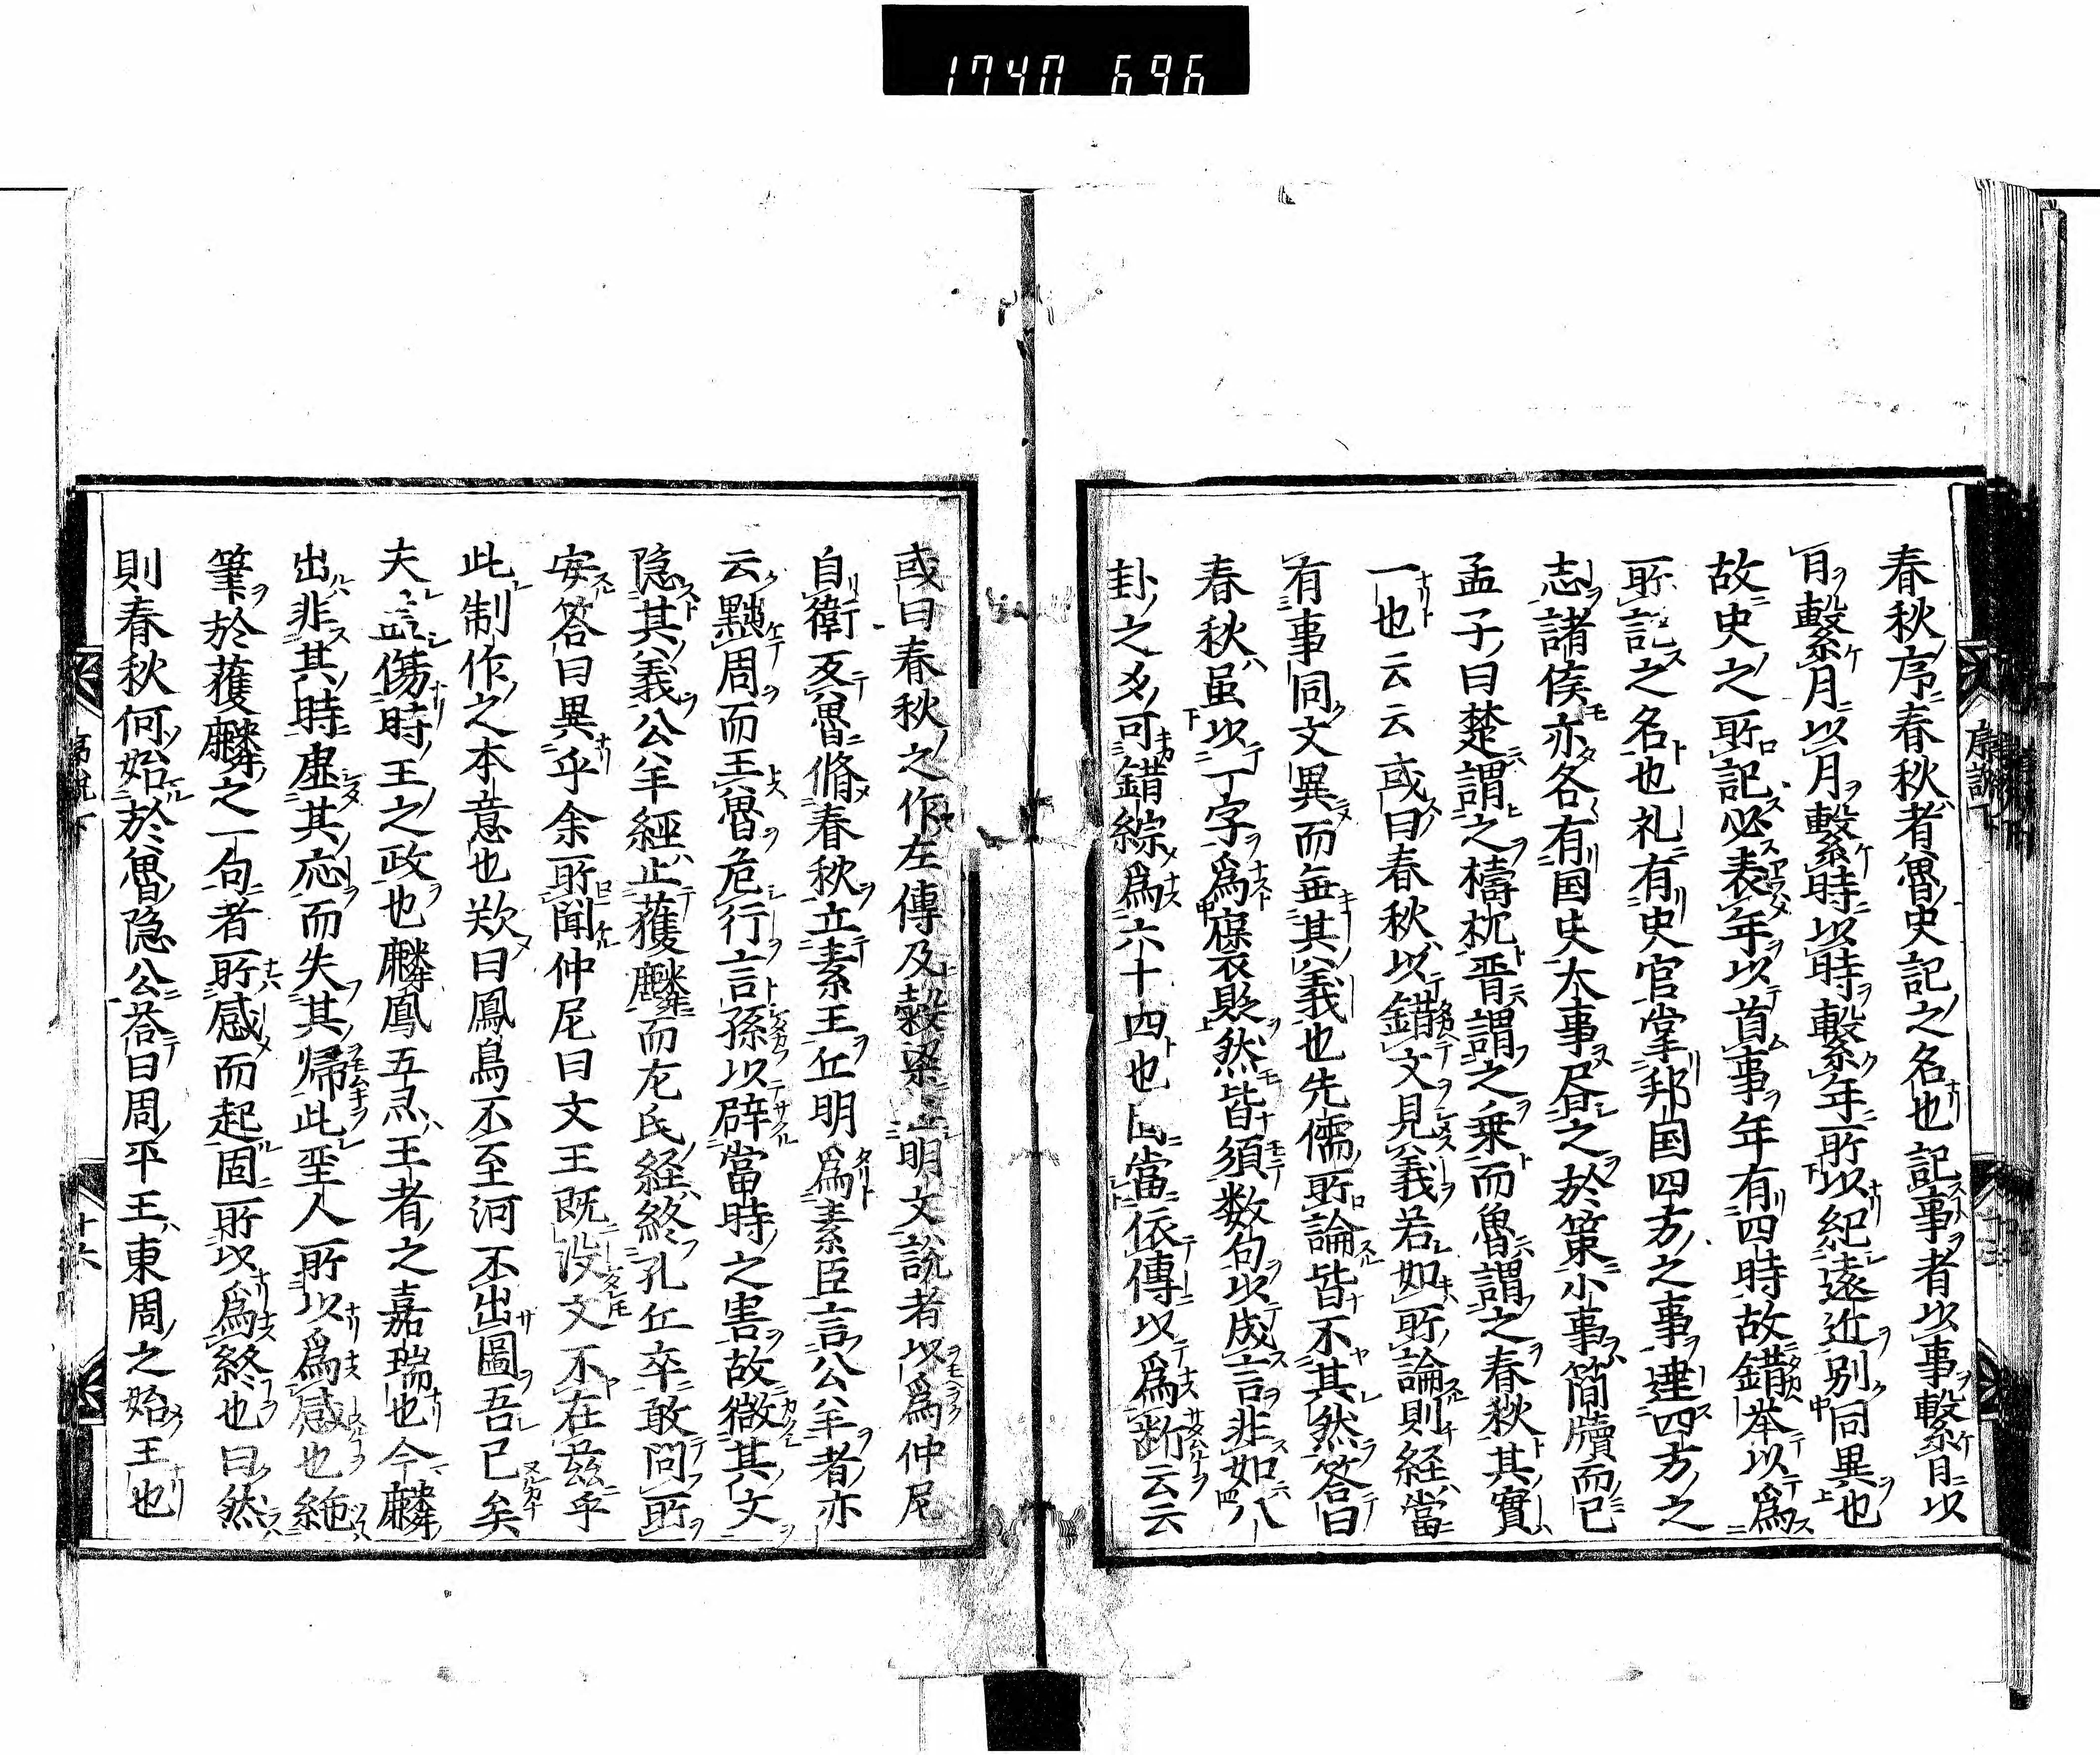 1740 696
春秋序春秋者魯史記之名也記事者以事繫日以
日繫月以月繫時以時繫年所以紀遠近別同異也
故史之所記必表年以首事年有四時故錯挙以爲
所記之名也礼有史官掌邦国四方之事達四方之
志諸侯亦各有国史大事昼之於策小事簡牘而已
孟子曰楚謂之檮杌晋謂之乗而魯謂之春秋其實
一也云云或曰春秋以錯文見義若如所論則経當
有事同文異而無其義也先儒所論皆不其然答曰
春秋虽以一字爲褒貶然皆須数句以成言非如八
卦之爻可錯綜爲六十四也固當依傳以爲断云云
或曰春秋之作左傳及穀梁無明文説者以爲仲尼
自衛反魯脩春秋立素王丘明爲素臣言公羊者亦
云黜周而王魯危行言孫以辟當時之害故微其文
隐其義公羊經止獲麟而左氏経終孔丘卒敢問所
安答曰異乎余所聞仲尼曰文王既没文不在茲乎
此制作之本意也歎曰鳳鳥不至河不出圖吾已矣
夫盖傷時王之政也麟鳳五灵王者之嘉瑞也今麟
出非其時虚其応而失其帰此聖人所以爲感也絶
筆於獲麟之一句者所感而起固所以爲終也曰然
則春秋何始於魯隐公荅曰周平王東周之始王也
序説下
十六